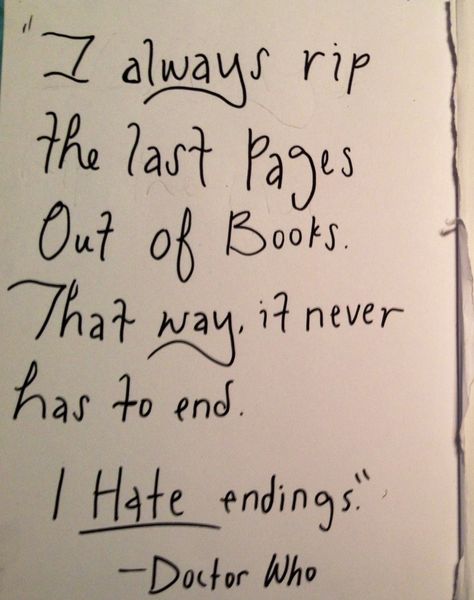 "I always rip
the last Pages
Out of Books.
That way, it never
has to end.
I Hate endings."
-Doctor Who